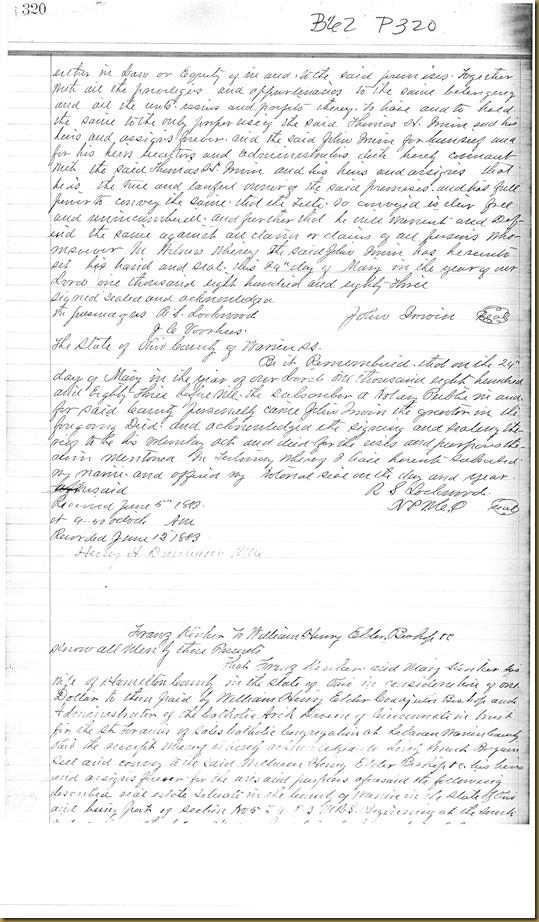 320
Bk 62 P320
either in Law or Equity of in and to the said premises. Together
with all the privileges and appurtenances to the same belonging
and all the rents issues and profits thereof. To have and to hold
the same to the only proper use of the said Thomas H. Irwin and his
heirs and assigns forever. and the said John Irwin for himself and
for his heirs executors and administrators doth hereby covenant
with the said Thomas H Irwin and his heirs and assigns that
he is the true and lawful owner of the said premises. and has full
power to convey the same. that the title so conveyed is clear free
and unincumbered. and further that he will Warrent and Def-
end the same against all claim or claims of all persons whom-
soever In Witness Whereof the said John Irwin has hereunto
set his hand and seal this 24" day of May in the year of our
Lord one thousand eight hundred and eighty three
signed sealed and acknowledged
in presence of us R. S. Lockwood John Irwin Seal
J. C. Voorhis.
The State of Ohio County of Warren SS.
Be it Remembered. that on the 24"
day of May in the year of our Lord one thousand eight hundred
and Eighty three before me. the subscriber a Notary Public in and
for said County personally came John Irwin the grantor in the
foregoing Deed. and acknowledged the signing and sealing the-
reof to be his voluntary act and deed. for the uses and purposes the-
rein mentioned In Testimony Whereof I have hereunto subscribed
my name. and affixed my Notorial seal on the day and year
aforesaid R S Lockwood.
Received June 5" 1883. Seal
at 9-40 oclock AM
Recorded June 12" 1883
Henry H
Franz Kinker To William Henry Elder, Bishop &c
Know all Men by these Presents
That Franz Kinker and Mary Kinker his
wife of Hamilton County in the State of Ohio in consideration of one
Dollar to them paid by William Henry Elder Coadjutor Bishop and
Administrator of the Catholic Arch Diocese of Cincinnati in trust
for the St. Francis of Sales Catholic Congregation at Lebanon Warren County
Ohio the receipt whereof is hereby acknowledged do hereby Grant Bargain
Sell and convey to the said William Henry Elder Bishop &c. his heirs
and assigns forever for the uses and purposes aforesaid the following
described real estate situate in the County of Warren in the State of Ohio
and being part of section No 5 T 4 R 3 M.R.S. Beginning at the South